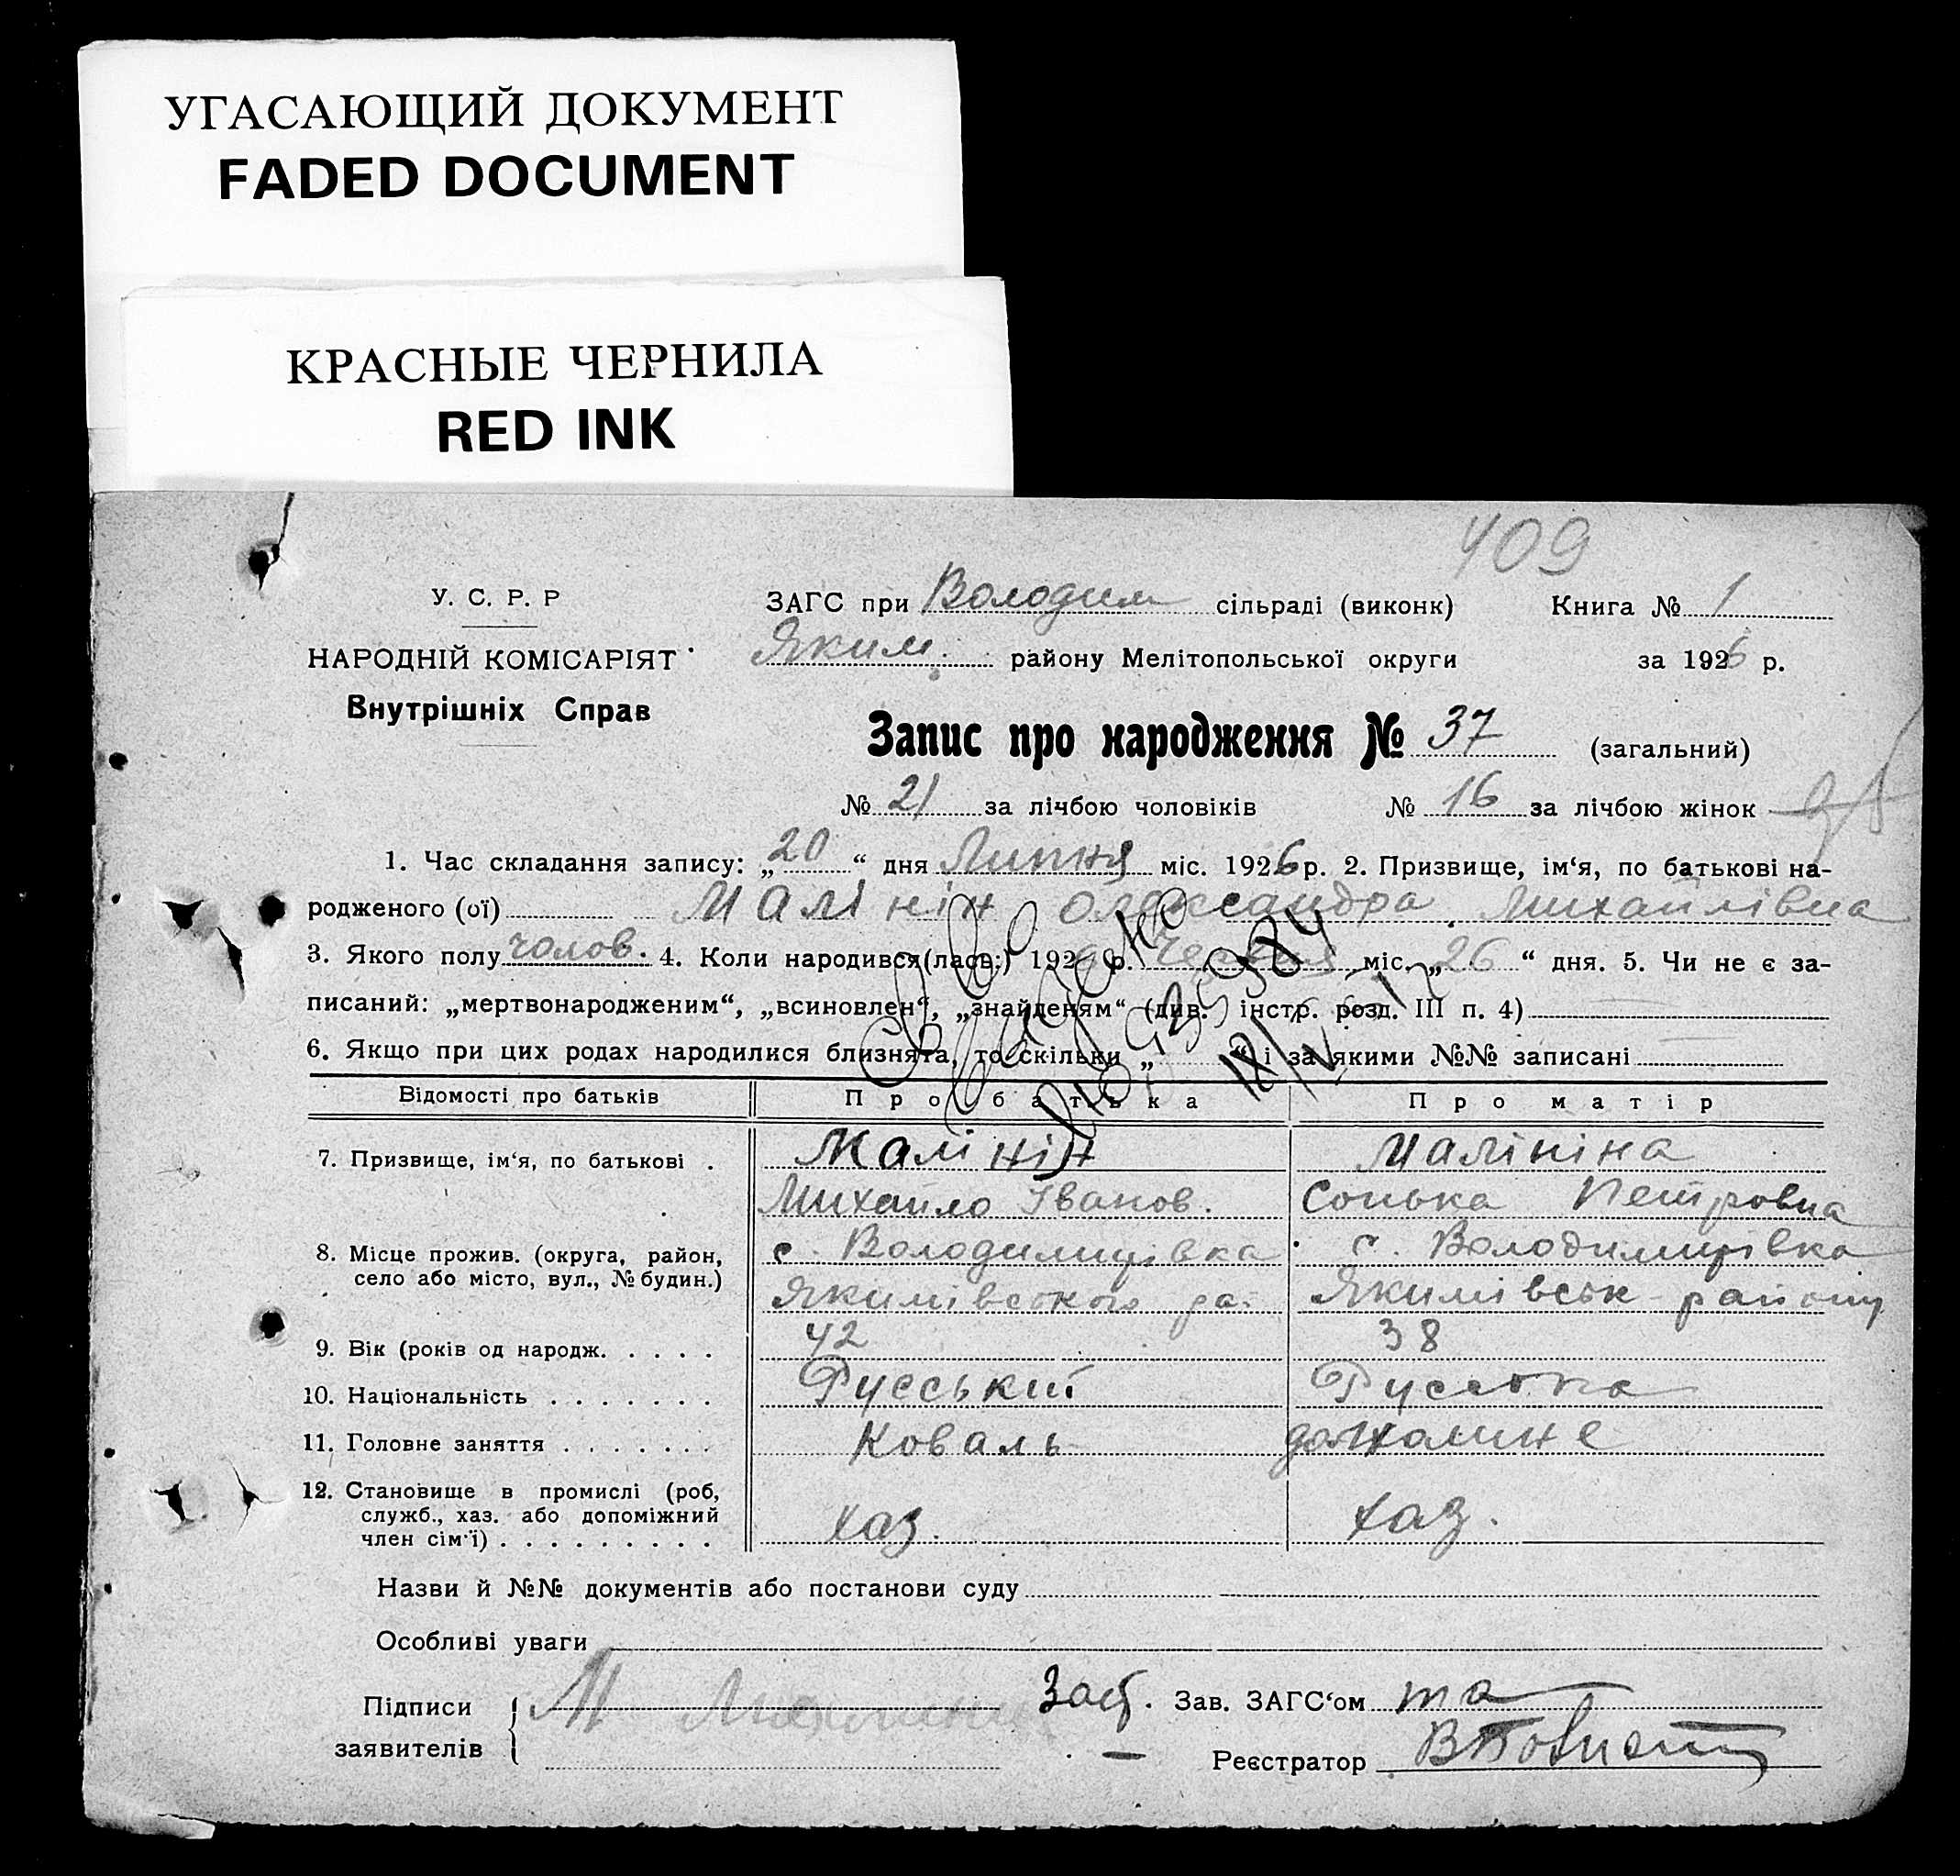 УГАСАЮЩИЙ ДОКУМЕНТ
FADED DOCUMENT
КРАСНЫЕ ЧЕРНИЛА
RED INK
409
У. С. Р. Р
НАРОДНІЙ КОМІСАРІЯТ
Внутрішніх Справ
ЗАГС при Володим сільраді (виконк) Книга № 1
Яким. району Мелітопольської округи за 1926 р.
Запис про народження № 37 (загальний)
№ 21 за лічбою чоловіків № 16 за лічбою жінок
1. Час складання запису: „20“ дня Липня міс. 1926 р. 2. Призвище, ім‘я, по батькові на-
родженого (ої) Малінін Олександра Михайлівна
3. Якого полу чолов. 4. Коли народився(лась:) 192 р. Червня міс. „26“ дня. 5. Чи не є за-
писаний: „мертвонародженим“, „всиновлен“, „знайденям“ (див. інстр. розд. III п. 4)
6. Якщо при цих родах народилися близнята, то скільки „ “ і за якими №№ записані
Відомості про батьків Про батька Про матір
7. Призвище, ім‘я, по батькові . Малінін Малініна
Михайло Іванов. Сонька Петровна
8. Місце прожив. (округа, район, с. Володимирівка с. Володимирівка
село або місто, вул., № будин.) Якимівського ра. Якимівськ району
9. Вік (років од народж. . . . . 42 38
10. Національність . . . . . . . Руський Руська
11. Головне заняття . . . . . . . Коваль
12. Становище в промислі (роб,
служб., хаз. або допоміжний
член сім‘ї) . . . . . . . . . хаз. хаз.
Назви й №№ документів або постанови суду
Особливі уваги
Підписи
заявителів
М Малинин
Заст. Зав. ЗАГС‘ом та
Реєстратор